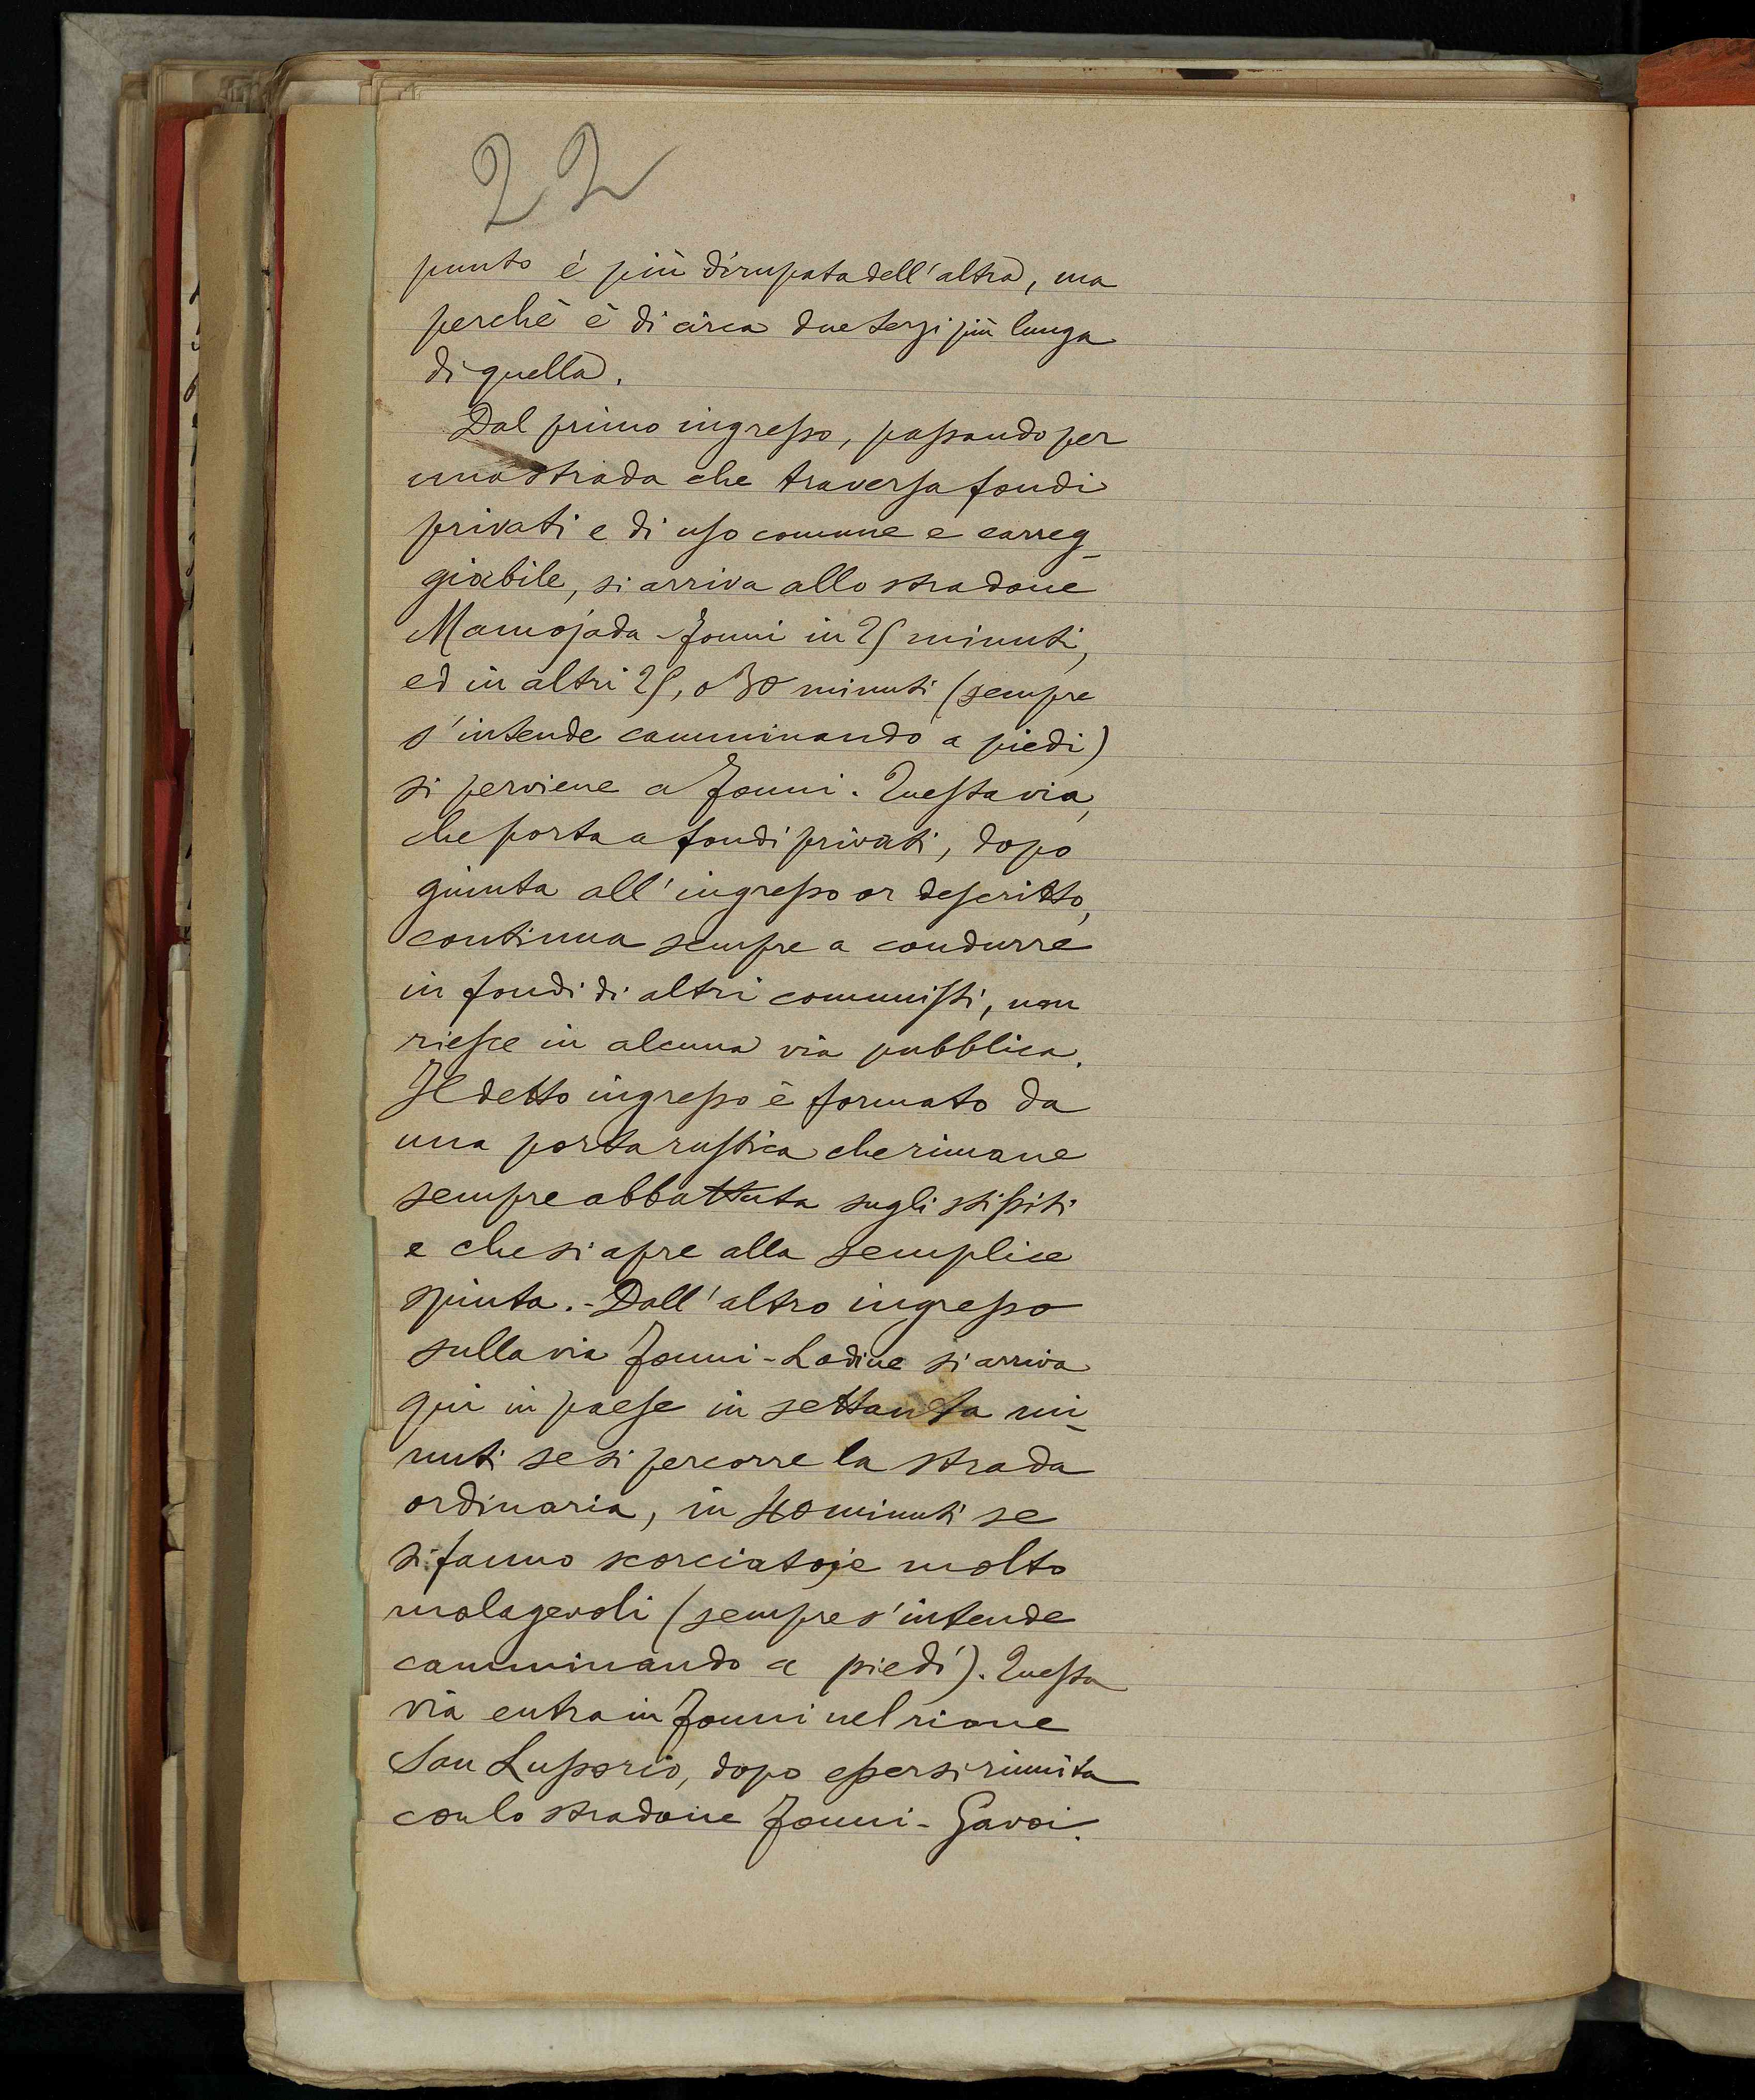 22
punto è più dirupata dell'altra, ma
perchè è di circa due terzi più lunga
di quella.
Dal primo ingresso, passando per
una strada che traversa fondi
privati e di uso comune e carreg-
giabile, si arriva allo stradone
Mamojada - Fonni in 25 minuti,
ed in altri 25, o 30 minuti (sempre
s'intende camminando a piedi)
si perviene a Fonni. Questa via,
che porta a fondi privati, dopo
giunta all'ingresso or descritto,
continua sempre a condurre
in fondi di altri comunisti, non
riesce in alcuna via pubblica.
Il detto ingresso è formato da
una porta rustica che rimane
sempre abbattuta sugli stipiti
e che si apre alla semplice
spinta. - Dall'altro ingresso
sulla via Fonni - Lodine si arriva
qui in paese in settanta mi-
nuti se si percorre la strada
ordinaria, in 40 minuti se
si fanno scorciatoje molto
malagevoli (sempre s'intende
camminando a piedi). Questa
via entra in Fonni nel rione
San Lussorio, dopo essersi riunita
con lo stradone Fonni - Gavoi.